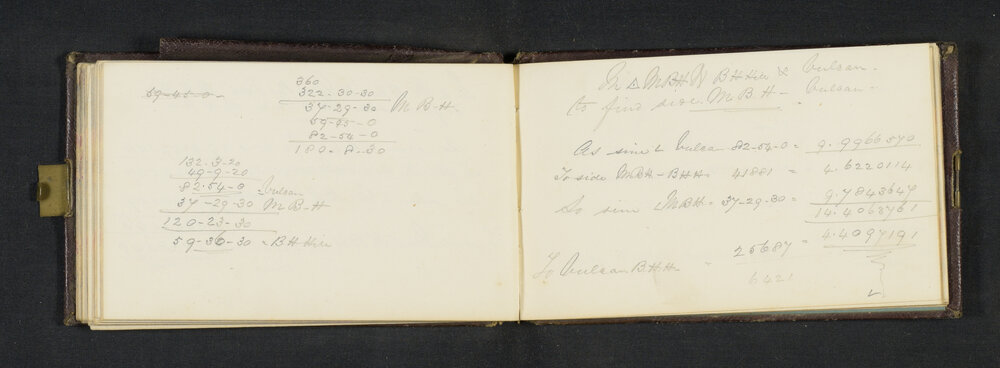 59-45-0-
360
322-30-30
37-29-30 M B-H
59-45-0
82-54-0
180-8-30
132-3-20
49-9-20
82-54-0 - Vulcan
37-29-30 M B-H
120-23-30
59-36-30 = B H Hill
In △ M B H B H Hill & Vulcan -
to find side M B H - Vulcan -
As sine ∠ Vulcan 82-54-0 = 9.9966570
To side M B H - B H H 41881 = 4.6220114
So sine ∠ M B H = 37-29-30 = 9.7843647
14.4063761
To Vulcan B. H. H. " 25687 = 4.4097191
6421